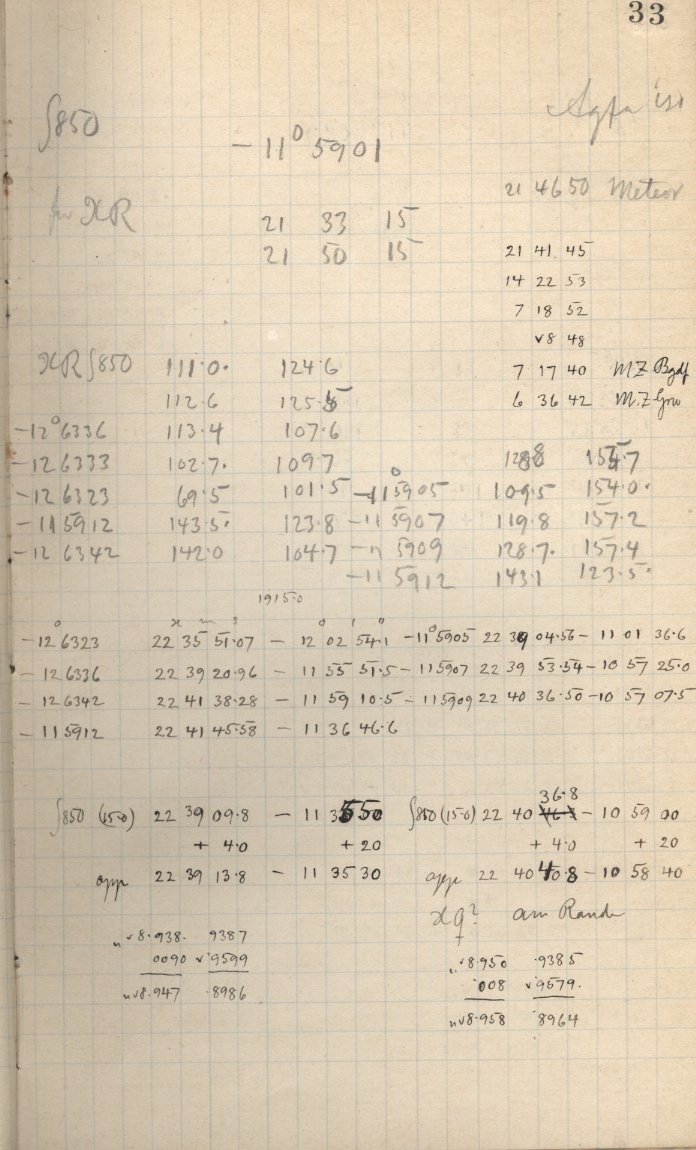 33
850
Agfa
-11° 5901
21 46 50 Meteor
XR
21 33 15
21 50 15
21 41 45
14 22 53
7 18 52
v8 48
XR ∫850 111.0. 124.6
7 17 40 M.Z Bgdf
112.6
6 36 42 M.Z Grw
-12° 6336 113.4 107.6
-12 6333 102.7. 109.7
-12 6323 69.5 101.5 -11° 5905 109.5 154.0.
-11 5912 143.5. 123.8 -11 5907 119.8 157.2
-12 6342 142.0 104.7 -11 5909 128.7. 157.4
-11 5912 143.1 123.5.
1915.0
h m s ° ' "
-12° 6323 22 35 51.07 - 12 02 54.1 -11° 5905 22 39 04.56 - 11 01 36.6
-12 6336 22 39 20.96 - 11 55 51.5 -11 5907 22 39 53.54 - 10 57 25.0
-12 6342 22 41 38.28 - 11 59 10.5 -11 5909 22 40 36.50 - 10 57 07.5
-11 5912 22 41 45.58 - 11 36 46.6
36.8
∫850 (15.0) 22 39 09.8 - 11 35 50 ∫850 (15.0) 22 40 - 10 59 00
+ 4.0 + 20 + 4.0 + 20
app 22 39 13.8 - 11 35 30 app 22 40 40.8 - 10 58 40
am Rande
nv8.938. 9387
0090 v9599
nv8.947 .8986
nv8.950 .9385
.008 v9579.
nv8.958 8964